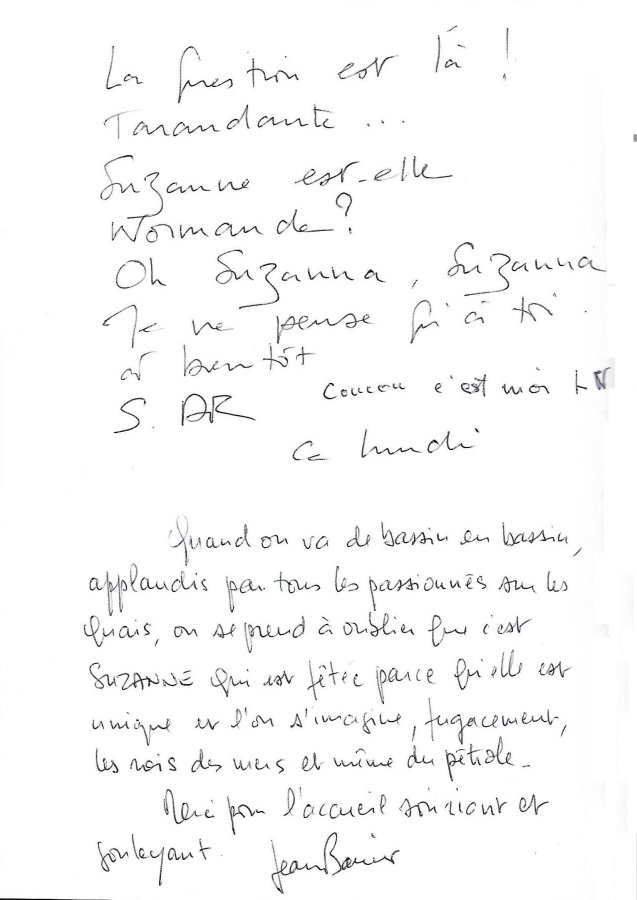 La question est là !
Tarandante ...
Suzanne est-elle
Normande ?
Oh Suzanna, Suzanna
Je ne pense qu'à toi.
à bientôt
S. AR
Coucou c'est moi
Ce lundi
Quand on va de bassin en bassin,
applaudis par tous les passionnés sur les
quais, on se prend à oublier que c'est
SUZANNE qui est fêtée parce qu'elle est
unique et l'on s'imagine, fugacement,
les rois des mers et même du pétrole.
Merci pour l'accueil souriant et
Jean